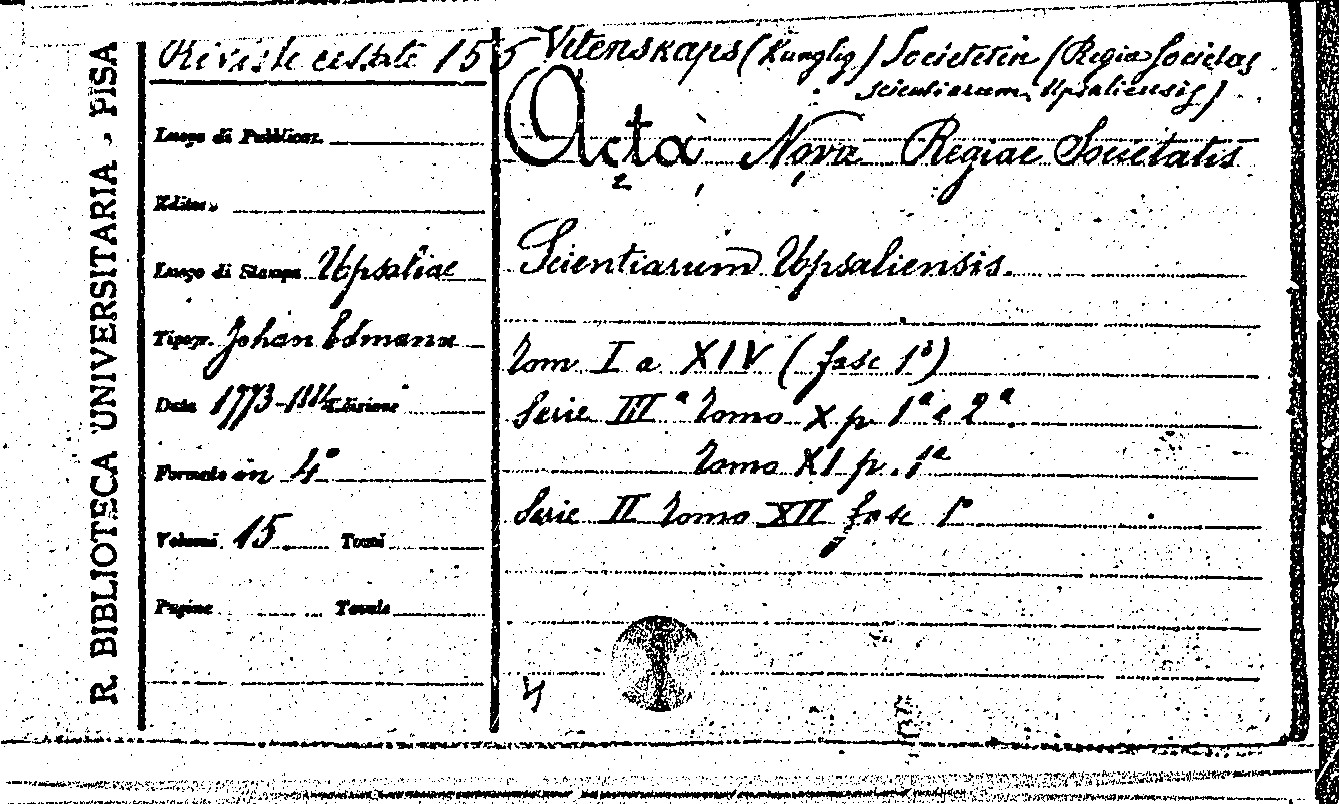 R. BIBLIOTECA UNIVERSITARIA - PISA
Riviste cessate 155
Luogo di Pubblicaz.
Editore
Luogo di Stampa Upsaliae
Tipogr. Johan Edmann
Data 1773- Edizione
Formato in 4°
Volumi 15 Tomi
Pagine Tavole
Vetenskaps (Kunglig) Societeten (Regia Societas
scientiarum Upsaliensis)
Acta Nova Regiae Societatis
2
Scientiarum Upsaliensis.
Tom I a XIV (fasc 1°)
Serie IIIª Tomo X p 1ª e 2ª
Tomo XI p. 1ª
Serie II Tomo XII fasc 1°